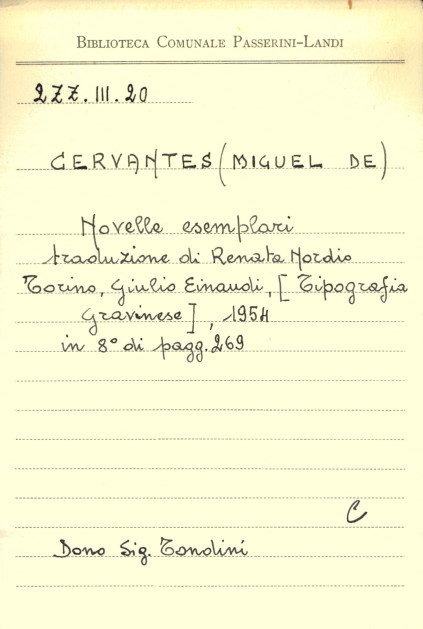 BIBLIOTECA COMUNALE PASSERINI-LANDI
2ZZ.III.20
CERVANTES (MIGUEL DE)
Novelle esemplari
traduzione di Renata Nordio
Torino, Giulio Einaudi, [Tipografia
Gravinese], 1954
in 8° di pagg. 269
C
Dono Sig. Tondini